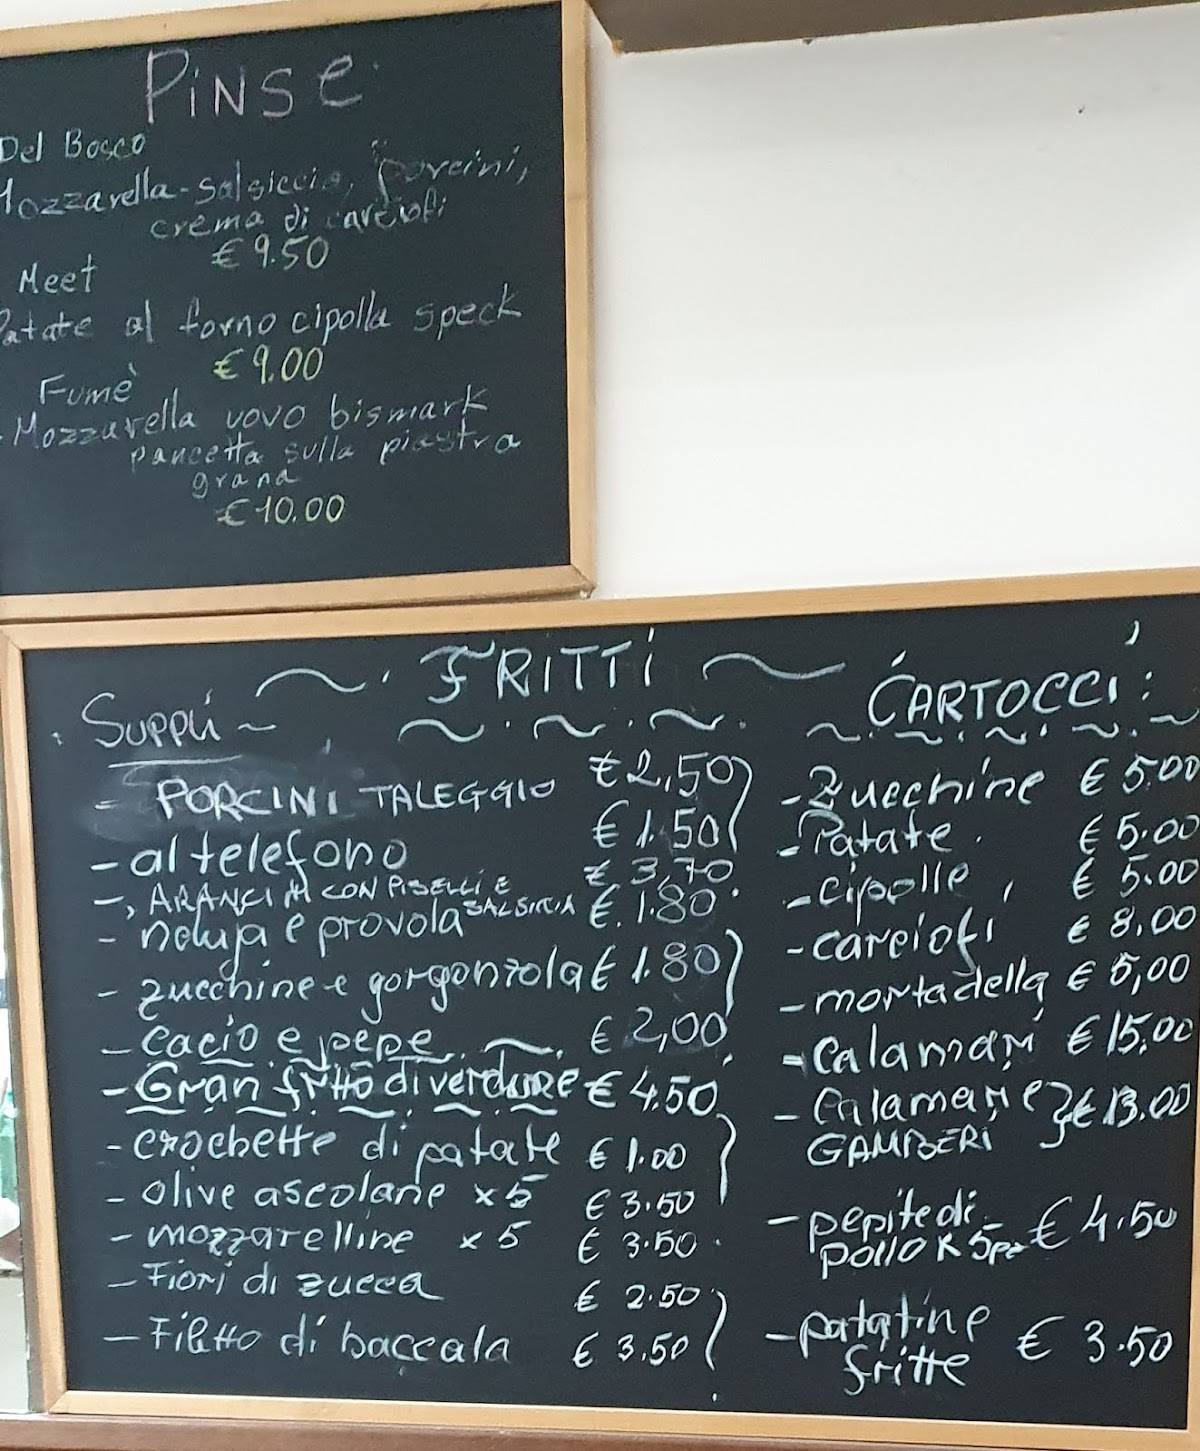 PiNSe
Del Bosco
Mozzarella-salsiccia, porcini,
crema di carciofi
€ 9.50
Meet
Patate al forno cipolla speck
€ 9.00
Fumè
Mozzarella uovo bismark
pancetta sulla piastra
grana
€ 10.00
FRITTi
Supplì
- PORCINI TALEGGIO €2,50
- al telefono € 1.50
- ARANCINI CON PISELLI E SALSICCIA € 3,70
- nduja e provola €.1.80
- zucchine e gorgonzola € 1.80
- cacio e pepe € 2,00
- Gran fritto di verdure € 4.50
- crochette di patate € 1.00
- olive ascolane x 5 € 3.50
- mozzarelline x 5 € 3.50
- Fiori di zucca € 2.50
- Filetto di baccala € 3,50
CARTOCCI:
- Zucchine € 5.00
- Patate € 5.00
- cipolle € 5.00
- carciofi € 8,00
- mortadella € 5,00
- Calamari € 15,00
- Calamari e
GAMBERI € 13.00
- pepite di
pollo x 5pz € 4.50
- patatine
fritte € 3.50